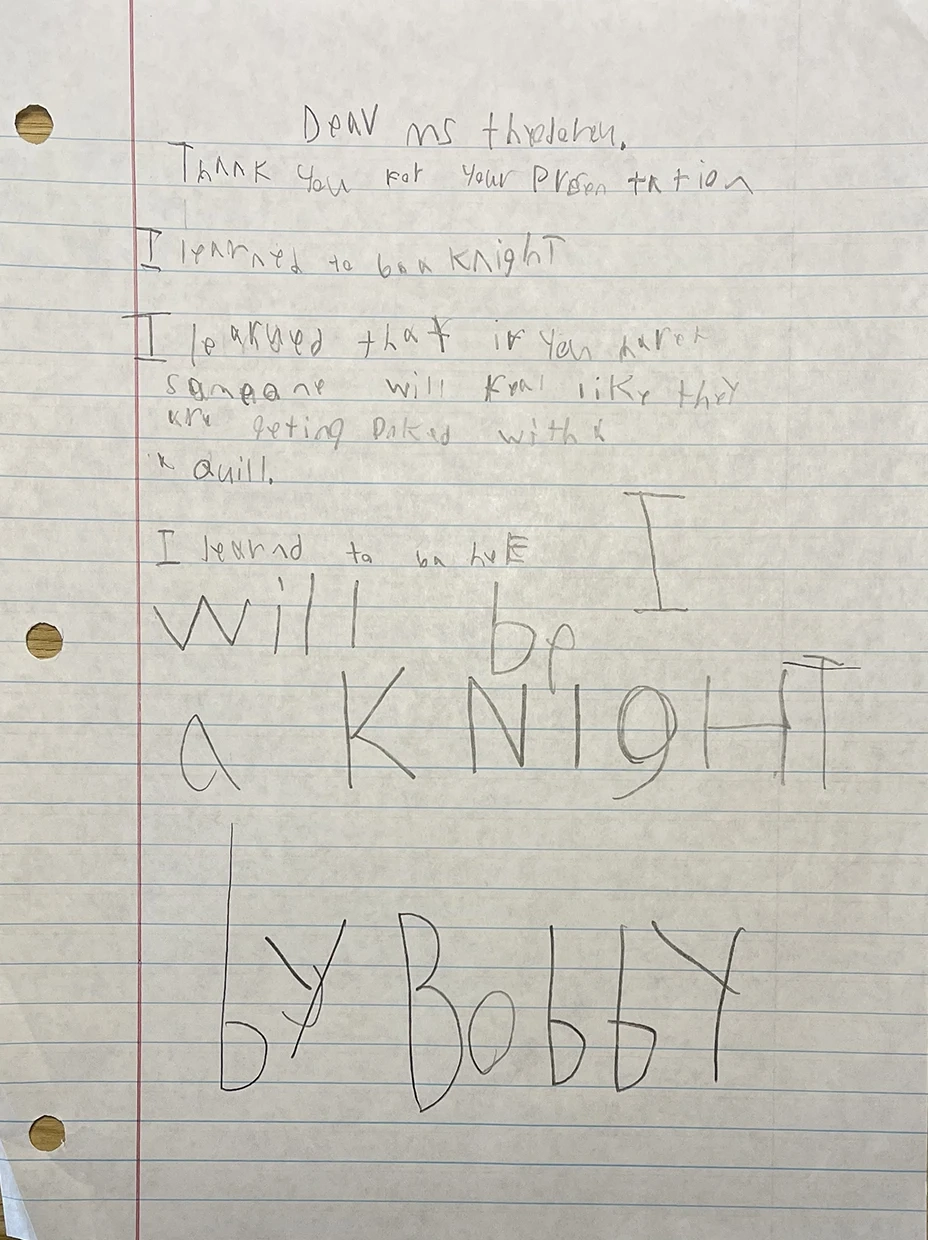 Dear ms
Thank you for your Presentation
I learned to be a KnighT
I learned that if you
someone will feal like they
are geting poked with a
a Quill.
I learnd to be
I
will be
a KNIgHT
by BobbY